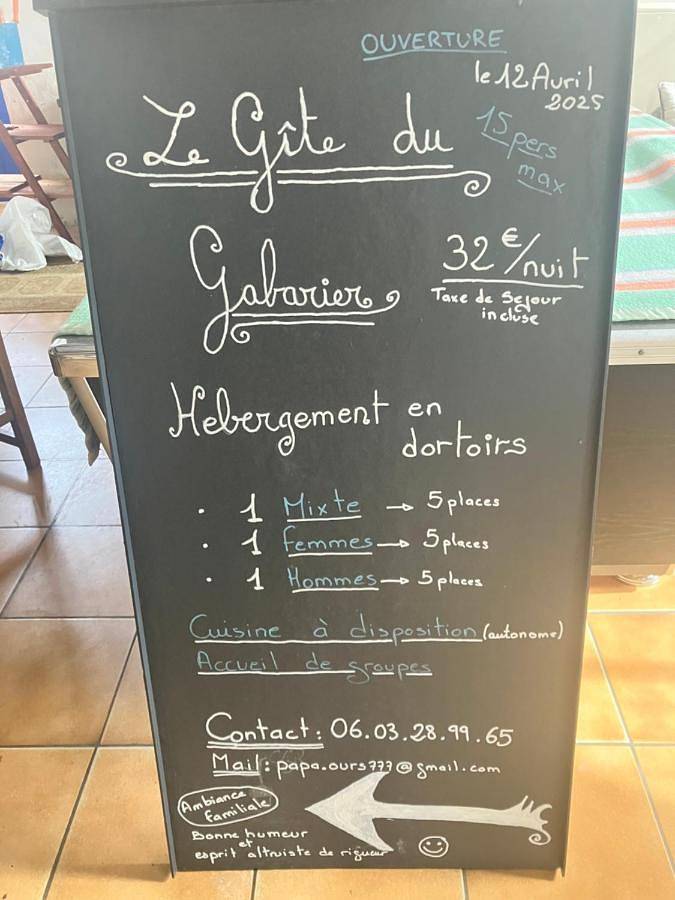 OUVERTURE
le 12 Avril
2025
15 pers
max
Le Gîte du
Gabarier
32€/nuit
Taxe de Séjour
incluse
Hebergement en
dortoirs
. 1 Mixte → 5 places
. 1 femmes → 5 places
. 1 Hommes → 5 places
Cuisine à disposition (autonome)
Accueil de groupes
Contact : 06.03.28.99.65
Mail : papa.ours777@gmail.com
Ambiance
familiale
Bonne humeur
et
esprit altruiste de rigueur